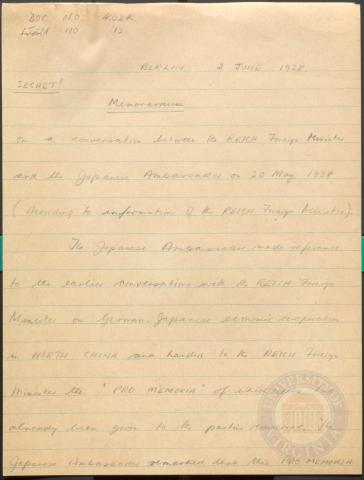 DOC NO 4022K
ITEM NO 12
BERLIN 2 JUNE 1938
SECRET!
Memorandum
In a conversation between the REICH Foreign Minister
and the Japanese Ambassador on 20 May 1938
(According to information of the REICH Foreign Minister).
The Japanese Ambassador made reference
to the earlier conversations with the REICH Foreign
Minister on German-Japanese economic cooperation
in NORTH CHINA and handed to the REICH Foreign
Minister the "PRO MEMORIA" of which
already been given to the parties concerned. The
Japanese Ambassador remarked that this PRO MEMORIA
UNIVERSITY OF VIRGINIA